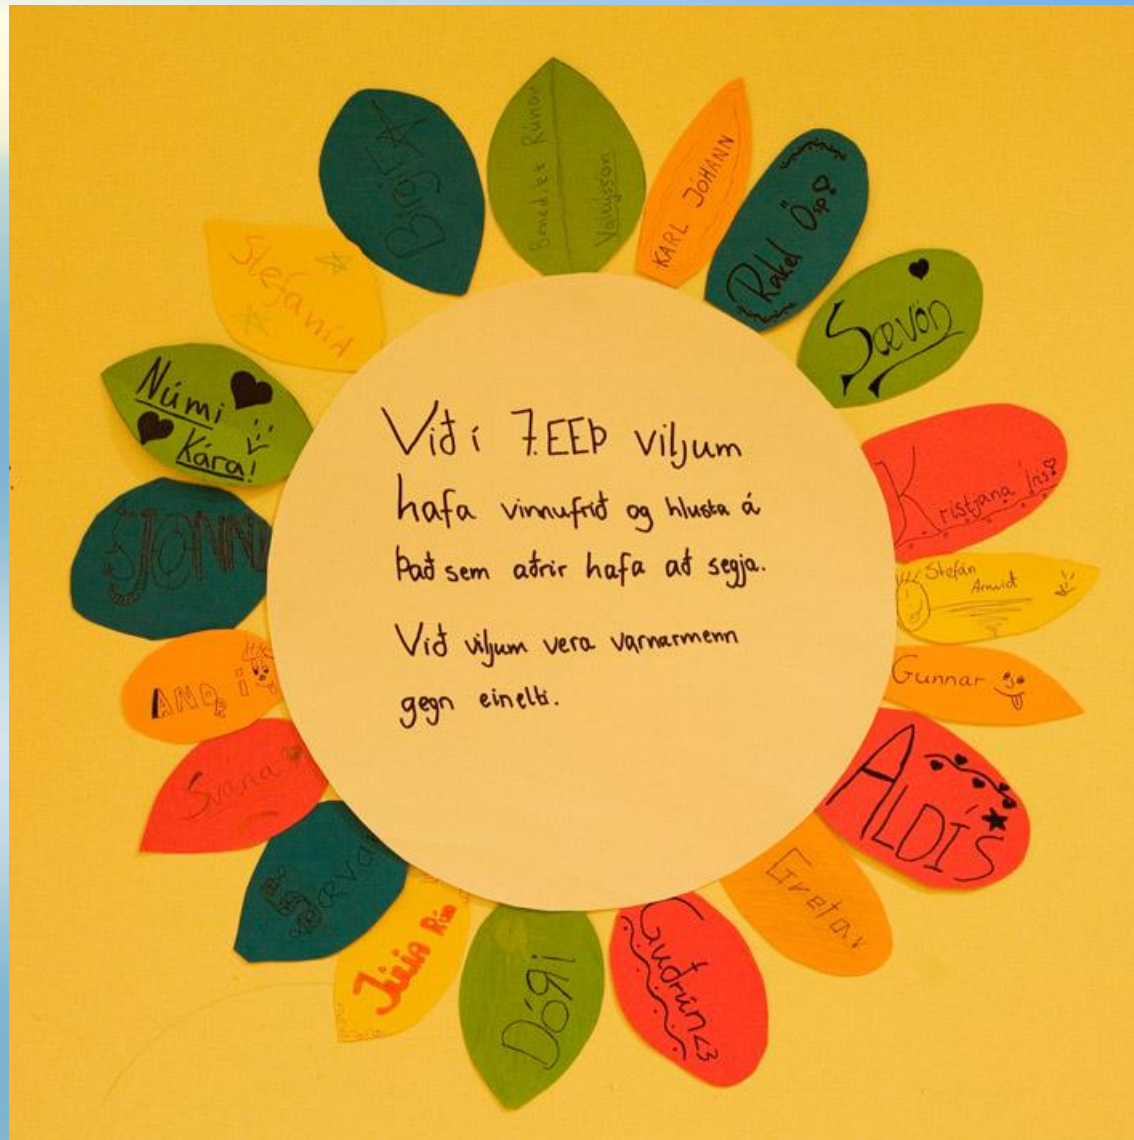 Við í 7.EEÞ viljum
hafa vinnufrið og hlusta á
það sem aðrir hafa að segja.
Við viljum vera varnarmenn
gegn einelti.
Benedikt Rúnar
Valtýsson
KARL JÓHANN
Rakel Ösp
Sævör
Kristjana Íris
Stefán
Arnvið
Gunnar
ALDÍS
Gretar
Guðrún <3
DÓRI
Júlía Rún
Sævar
Svana
ANDRI
JONNI
Númi
Kára!
Stefanía
BirgittA